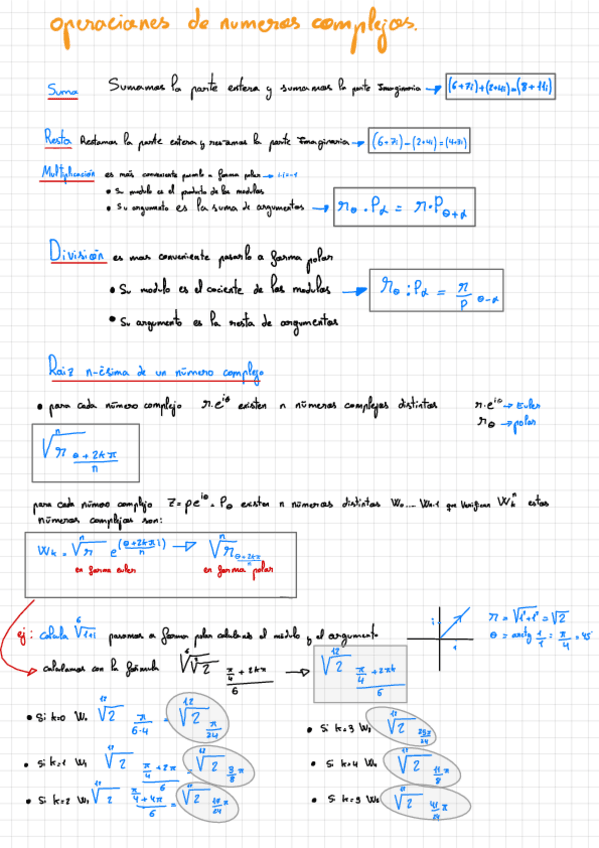 operaciones de numeros complejos.
Suma Sumamos la parte entera y sumamos la parte Imaginaria → (6+7i)+(2+4i)=(8+11i)
Resta Restamos la parte entera y restamos la parte Imaginaria → (6+7i)-(2+4i)=(4+3i)
Multiplicación es más conveniente pasarlo a forma polar → i·i=-1
• Su modulo es el producto de los modulos
• Su argumento es la suma de argumentos → r_θ · P_α = r·P_θ+α
División es mas conveniente pasarlo a forma polar
• Su modulo es el cociente de los modulos → r_θ : P_α = r/P θ-α
• Su argumento es la resta de argumentos
Raiz n-ésima de un número complejo
• para cada número complejo r·e^iθ existen n números complejos distintos r·e^iθ → Euler
r_θ → polar
ⁿ√r (θ+2kπ)/n
para cada número complejo Z=pe^iθ = P_θ existen n números distintos W₀.... Wn-1 que verifican W_k^n estos
números complejos son:
W_k = ⁿ√r e^(θ+2kπ i) → ⁿ√r (θ+2kπ)/n
en forma euler en forma polar
ej: calcula ⁶√1+i pasamos a forma polar calculando el módulo y el argumento
i 1
r = √1²+1² = √2
θ = arctg 1/1 = π/4 = 45°
calculamos con la fórmula ⁶√√2 (π/4+2kπ)/6 → ¹²√2 (π/4+2πk)/6
• Si k=0 W₀ ¹²√2 π/6·4 = ¹²√2 π/24
• Si k=1 W₁ ¹²√2 (π/4+2π)/6 = ¹²√2 3/8 π
• Si k=2 W₂ ¹²√2 (π/4+4π)/6 = ¹²√2 17/24 π
• Si k=3 W₃ ¹²√2 25π/24
• Si k=4 W₄ ¹²√2 11/8 π
• Si k=5 W₅ ¹²√2 41/24 π